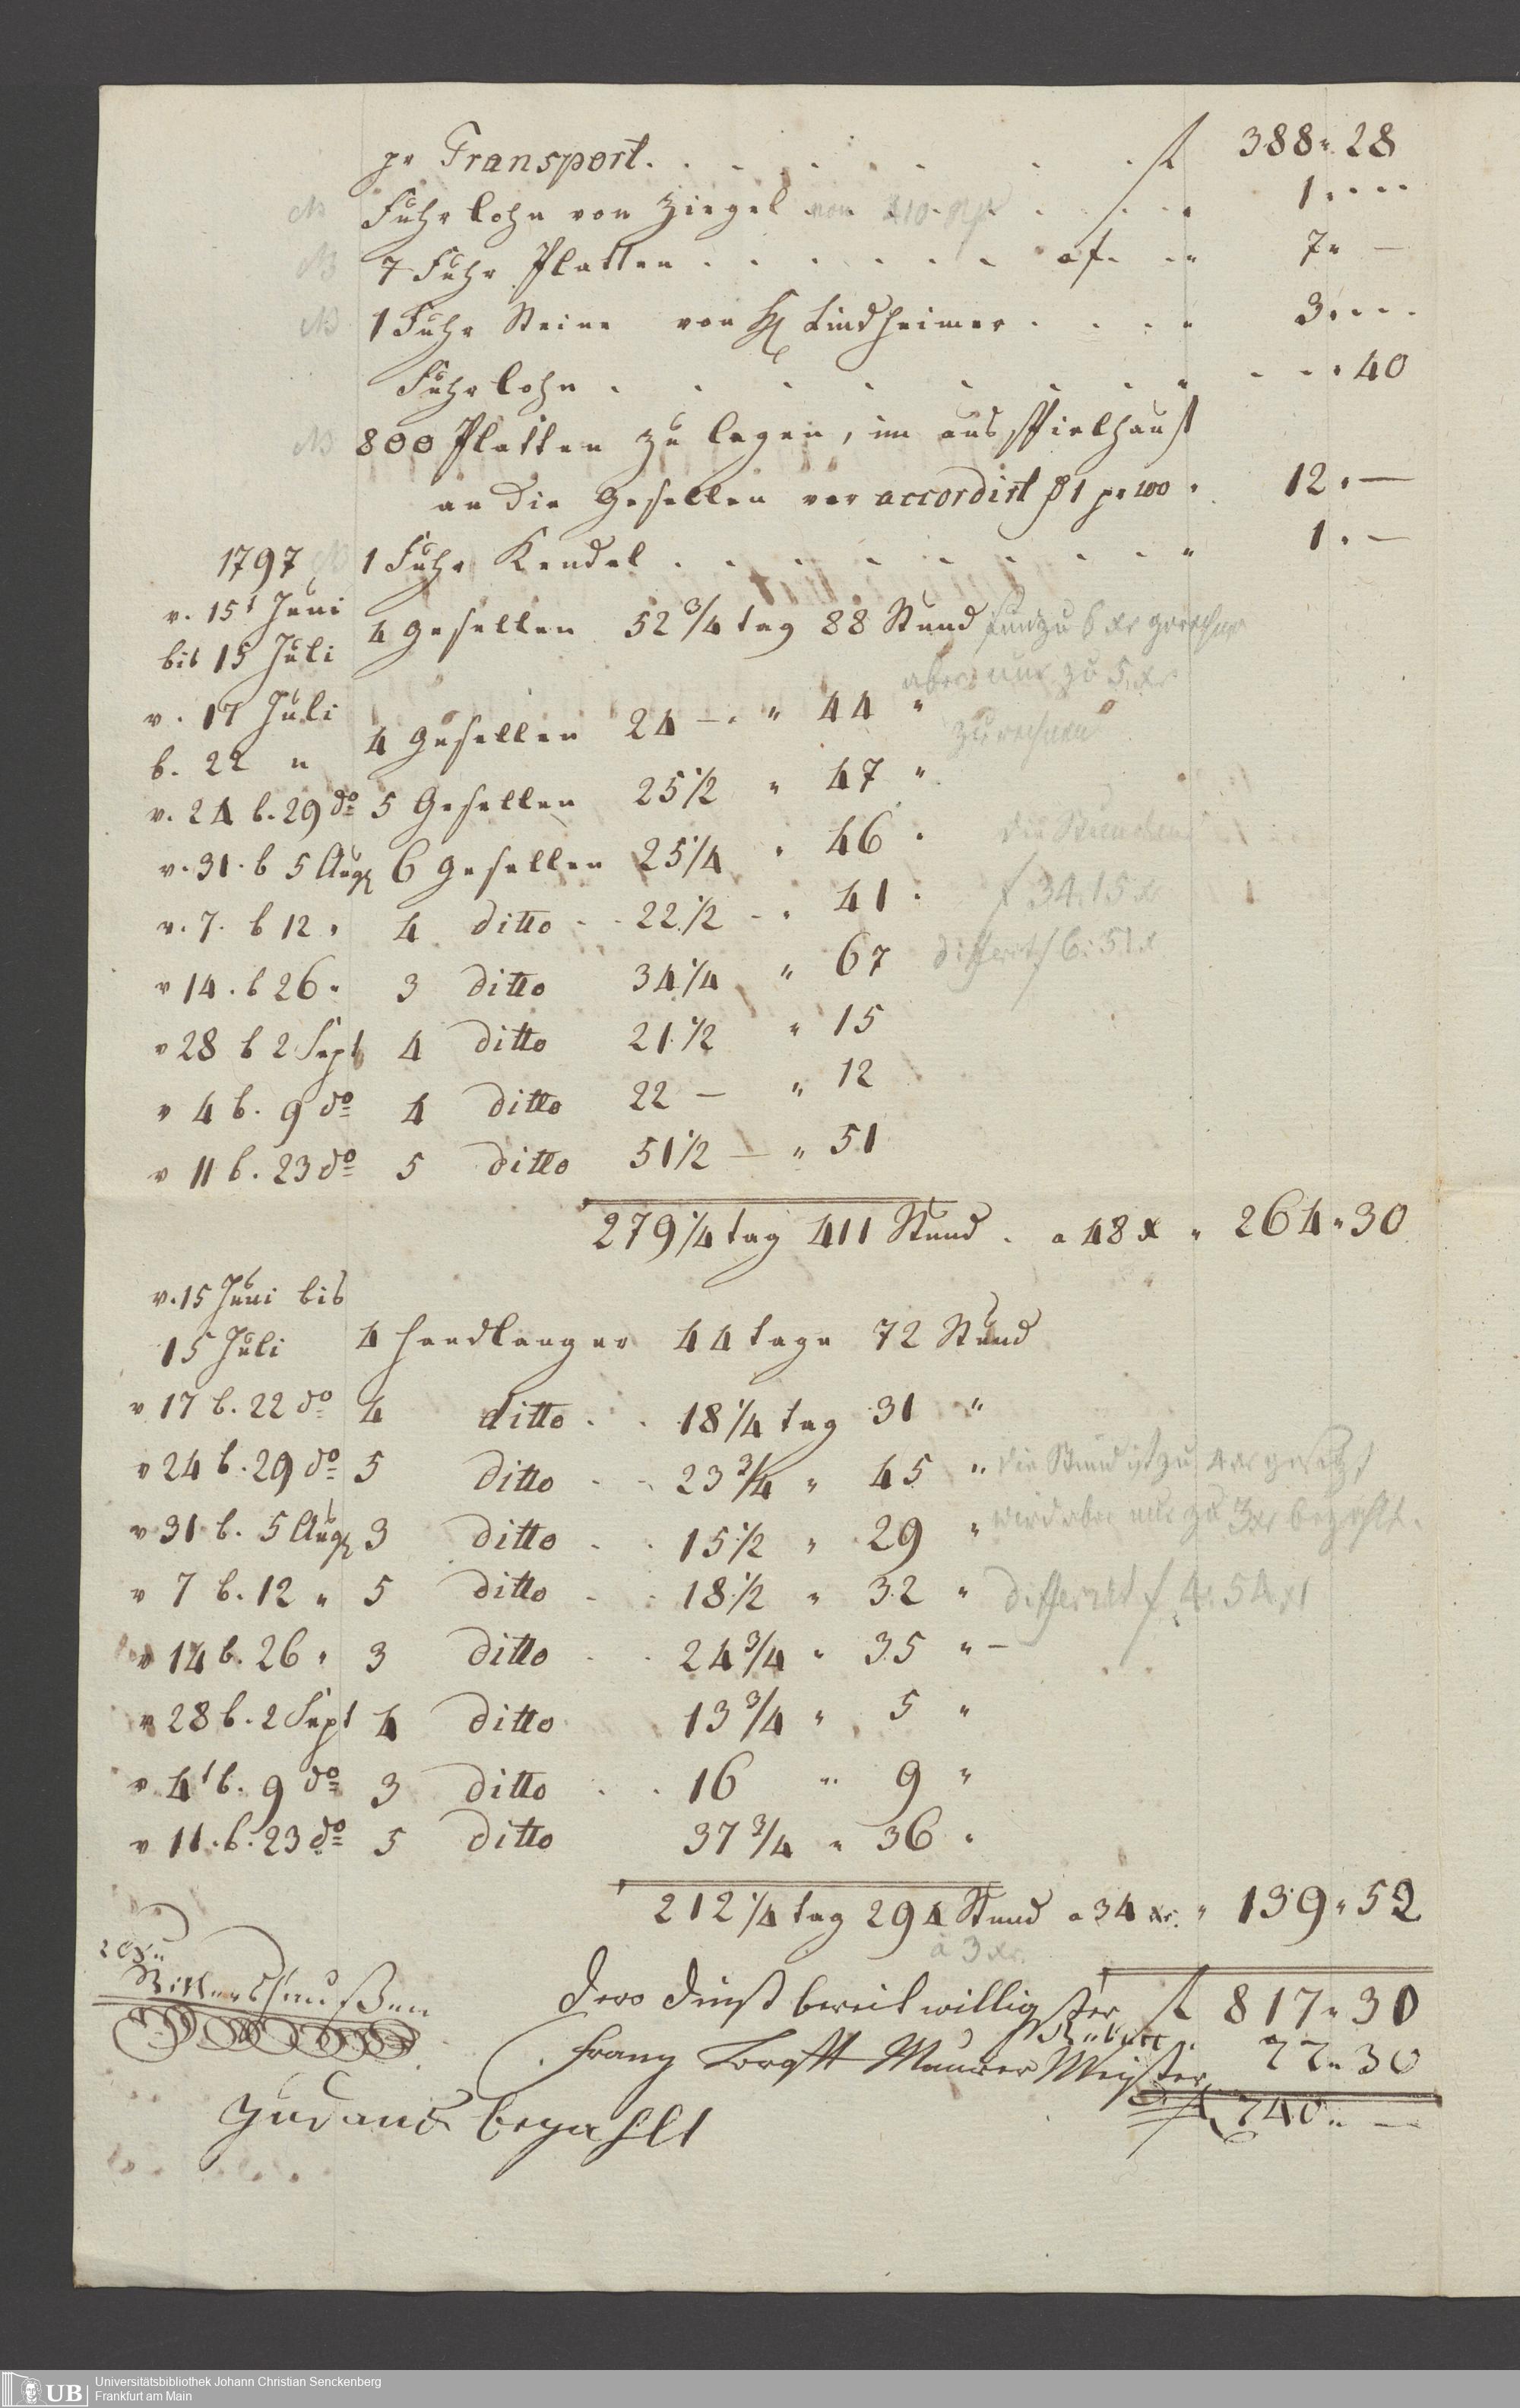 pr Transport . . . . . . . . f 388 " 28
NB Fuhrlohn von Ziegel von . . . . 1 " - -
NB 7 Fuhr Platten . . . . . . a f . . " 7 " —
NB 1 Fuhr Steine von H Lindheimer . . . " 3 " - -
Fuhrlohn . . . . . . . . " - - " 40
NB 800 Platten zu legen, im
an die Gesellen ver accordirt f 1 pr 100 " 12 " —
1797 NB 1 Fuhr Kendel . . . . . . . . " 1 " —
v. 15t Juni
bis 15 Juli 4 Gesellen 52 3/4 tag 88 Stund sund zu 6 xr gerechnet
aber nur zu 5 xr
v. 17 Juli
b. 22 " 4 Gesellen 24 — " 44 " zu rechnen
v. 24 b. 29 do 5 Gesellen 25 1/2 " 47 "
v. 31. b 5 Aug 6 Gesellen 25 1/4 " 46 " die Stunden
v. 7. b 12 " 4 ditto - - 22 1/2 - " 41 " f 34. 15 x
v 14. b 26 " 3 ditto 34 1/4 " 67 differirt f 6: 51 x
v 28 b 2 Sept 4 ditto 21 1/2 " 15
v 4 b. 9 do 4 ditto 22 — " 12
v 11 b. 23 do 5 ditto 51 1/2 — " 51
279 1/4 tag 411 Stund . a 48 x " 264 " 30
v. 15 Juni bis
15 Juli 4 Handlanger 44 tage 72 Stund
v 17 b. 22 do 4 ditto . . 18 1/4 tag 31 "
v 24 b. 29 do 5 ditto - - 23 3/4 " 45 " die Stund ist zu 4 xr gesetzt
v 31 b. 5 Aug 3 ditto . . 15 1/2 " 29 " wird aber nur zu 3 xr bezahlt.
v 7 b. 12 " 5 ditto - - 18 1/2 " 32 " differirt f 4: 54 x
v 14 b. 26 " 3 ditto . . 24 3/4 " 35 " —
v 28 b. 2 Sept 4 ditto 13 3/4 " 5 "
v 4t b. 9 do 3 ditto . . 16 " 9 "
v 11. b. 23 do 5 ditto 37 3/4 " 36 "
212 1/4 tag 294 Stund a 34 xr " 139 " 52
à 3 xr.
Dero dinst bereit willigster f 817 " 30
Franz Maurer Meister 77 " 30
f 740 " —
zu dank bezahlt
Universitätsbibliothek Johann Christian Senckenberg
Frankfurt am Main
UB